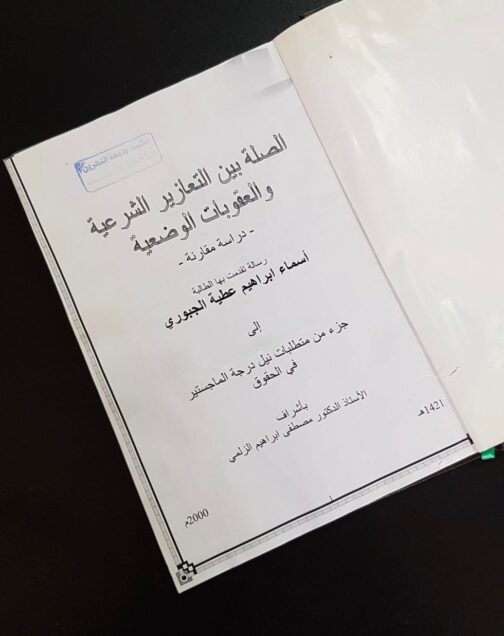 مكتبة جامعة النهرين
الصلة بين التعازير الشرعية
والعقوبات الوضعية
- دراسة مقارنة -
رسالة تقدمت بها الطالبة
أسماء ابراهيم عطية الجبوري
إلى
جزء من متطلبات نيل درجة الماجستير
في الحقوق
بأشراف
الأستاذ الدكتور مصطفى ابراهيم الزلمي
1421هـ
2000م